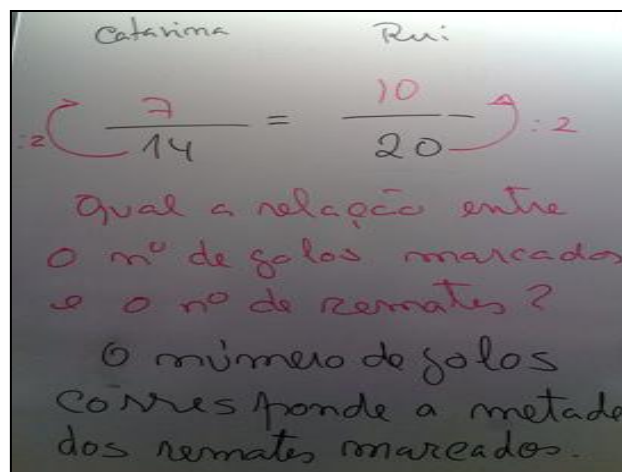 Catarina Rui
:2 7/14 = 10/20 :2
Qual a relação entre
o nº de golos marcados
e o nº de remates?
O número de golos
corresponde a metade
dos remates marcados.